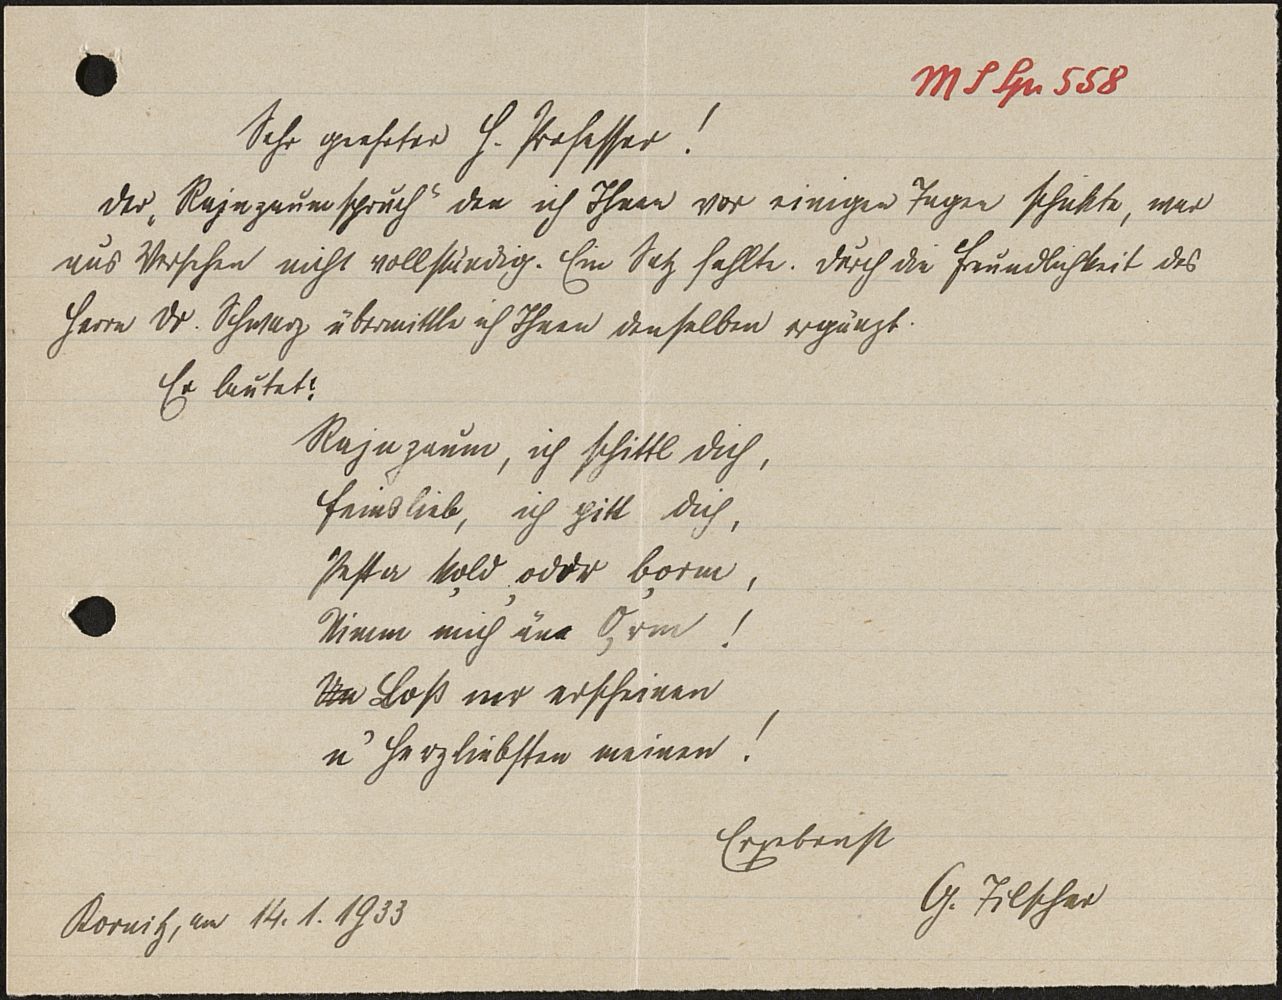 MS Spr 558
Sehr geehrter H. Professor!
Der „Rajnzaumspruch“ den ich Ihnen vor einigen Tagen schickte, war
aus Versehen nicht vollständig. Ein Satz fehlte. Durch die Freundlichkeit des
Herrn Dr. Schwarz übermittle ich Ihnen denselben ergänzt.
Er lautet:
Rajnzaum, ich schittl dich,
feinslieb, ich pitt dich,
Pesta kold oder borm,
Nimm mich äna Orm!
Loß mr erscheinen
n' Herzliebsten meinen!
Ergebenst
G. Tilscher
Kornitz, am 14.1.1933